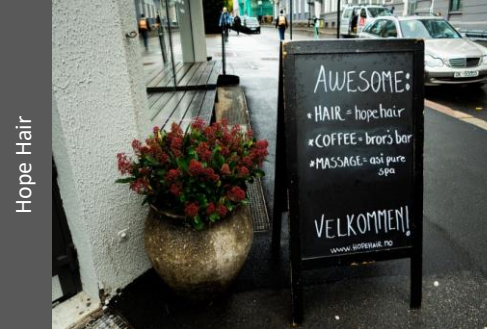 Hope Hair
AWESOME:
*HAIR = hopehair
*COFFEE = bror's bar
*MASSAGE = asi pure
spa
VELKOMMEN!
WWW.HOPEHAIR.NO